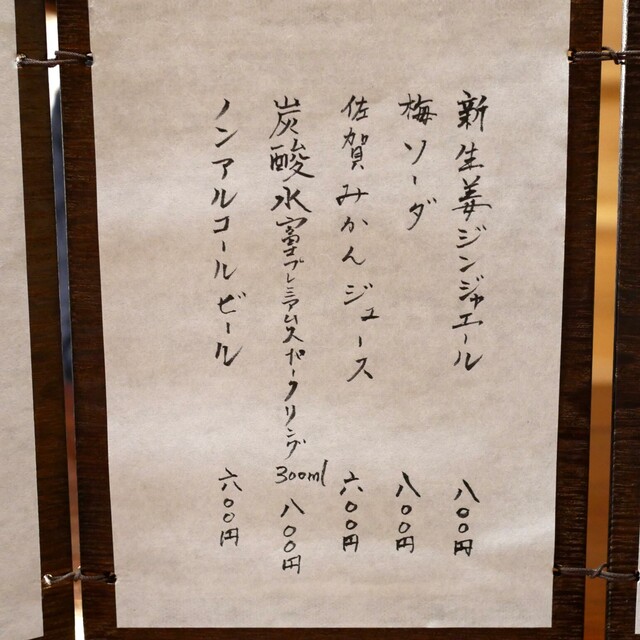 新生姜ジンジャエール 八〇〇円
梅ソーダ 八〇〇円
佐賀みかんジュース 六〇〇円
炭酸水 富士プレミアムスパークリング 300ml 八〇〇円
ノンアルコールビール 六〇〇円